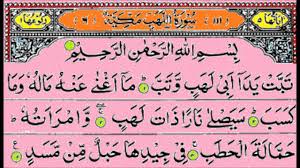 اٰيَاتُهَا ٥ (١١١) سُوْرَةُ اللَّهَبِ مَكِّيَّةٌ (٦) رُكُوْعُهَا ١
بِسْمِ اللهِ الرَّحْمٰنِ الرَّحِيْمِ
تَبَّتْ يَدَاۤ اَبِيْ لَهَبٍ وَّتَبَّ ؕ مَاۤ اَغْنٰى عَنْهُ مَالُهٗ وَمَا
كَسَبَ ؕ سَيَصْلٰى نَارًا ذَاتَ لَهَبٍ ۚ وَّامْرَاَتُهٗ ؕ
حَمَّالَةَ الْحَطَبِ ۚ فِيْ جِيْدِهَا حَبْلٌ مِّنْ مَّسَدٍ